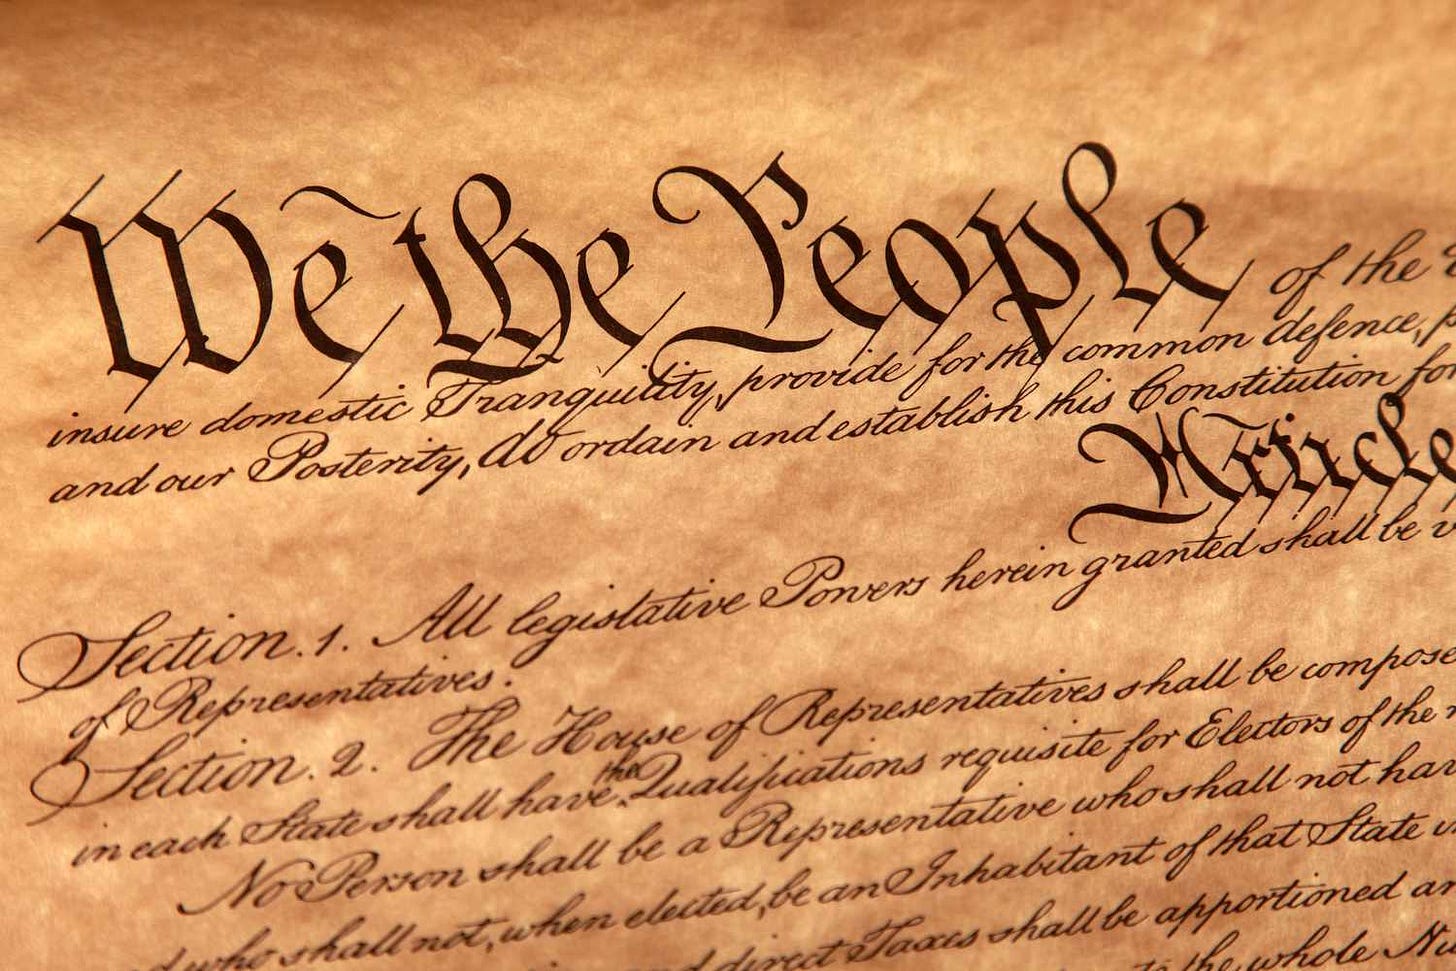 We the People of the
insure domestic Tranquility, provide for the common defence,
and our Posterity, do ordain and establish this Constitution for
Article
Section. 1. All legislative Powers herein granted shall be
of Representatives.
Section. 2. The House of Representatives shall be compose
in each State shall have the Qualifications requisite for Electors of the
No Person shall be a Representative who shall not hav
who shall not, when elected, be an Inhabitant of that State
direct Taxes shall be apportioned
to the whole